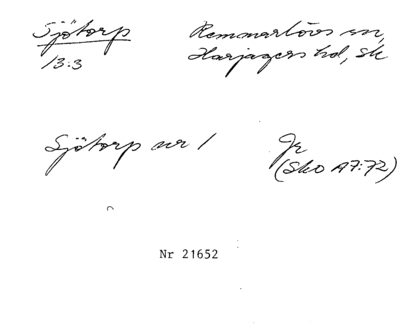 Sjötorp
13:3
Remmarlövs sn,
Harjagers hd, Sk
Sjötorp nr 1
Jr
(SkO A7:72)
Nr 21652